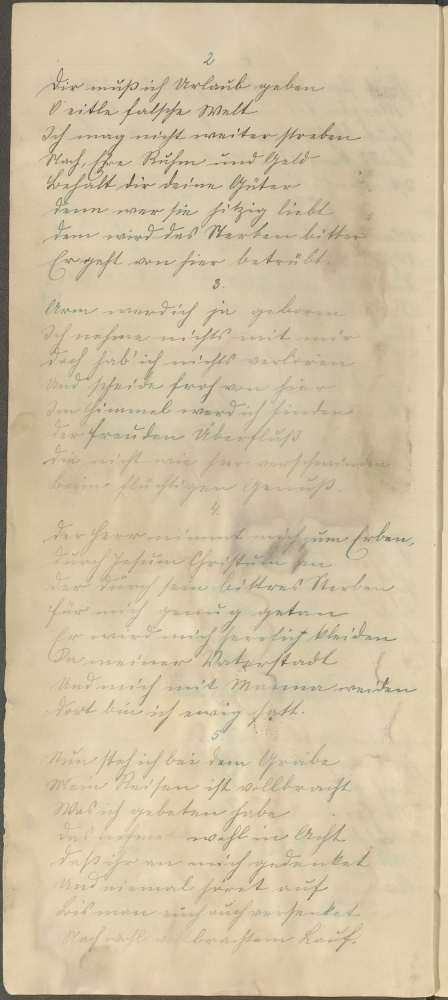 2
Dir muß ich Urlaub geben
O eitle falsche Welt
Ich mag nicht weiter streben
Nach Ehre Ruhm und Geld
Behalt dir deine Güter
denn wer sie hitzig liebt
dem wird das Sterben bitter
Er geht von hier betrübt.
3.
Arm ward ich ja geboren
Ich nehme nichts mit mir
doch hab' ich nichts verloren
Und scheide froh von hier
Im Himmel werd ich finden
der Freuden Überfluß
die nicht wie hier verschwinden
beim flüchtigen Genuß.
4.
Der Herr nimmt mich zum Erben,
durch Jesum Christum an
der durch sein bittres Sterben
für mich genug getan
Er wird mich herrlich kleiden
In meiner Vaterstadt
Und mich mit Manna weiden
dort bin ich ewig satt.
5
Nun steh ich bei dem Grabe
Mein Reisen ist vollbracht
Was ich gebeten habe
das nehmet wohl in Acht
daß ihr an mich gedenket
Und niemal höret auf
Bis man euch auch versenket
Nach wohl vollbrachtem Lauf.